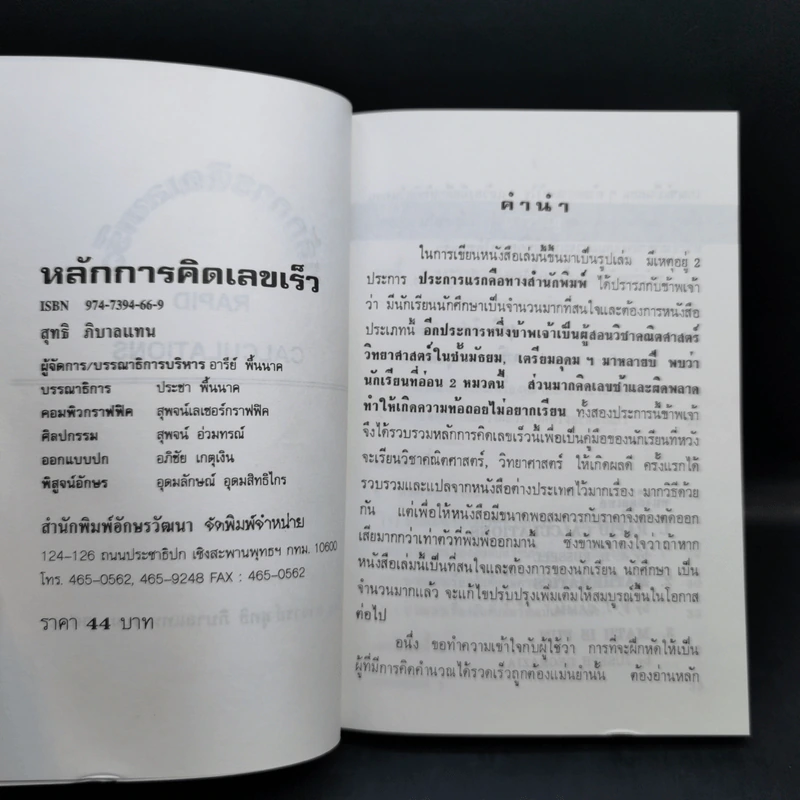 หลักการคิดเลขเร็ว
ISBN 974-7394-66-9
สุทธิ ภิบาลแทน
ผู้จัดการ/บรรณาธิการบริหาร อารีย์ พื้นนาค
บรรณาธิการ ประชา พื้นนาค
คอมพิวกราฟฟิค สุพจน์เลเซอร์กราฟฟิค
ศิลปกรรม สุพจน์ อ่วมทรณ์
ออกแบบปก อภิชัย เกตุเงิน
พิสูจน์อักษร อุดมลักษณ์ อุดมสิทธิไกร
สำนักพิมพ์อักษรวัฒนา จัดพิมพ์จำหน่าย
124-126 ถนนประชาธิปก เชิงสะพานพุทธฯ กทม. 10600
โทร. 465-0562, 465-9248 FAX : 465-0562
ราคา 44 บาท
คำนำ
ในการเขียนหนังสือเล่มนี้ขึ้นมาเป็นรูปเล่ม มีเหตุอยู่ 2
ประการ ประการแรกคือทางสำนักพิมพ์ ได้ปรารภกับข้าพเจ้า
ว่า มีนักเรียนนักศึกษาเป็นจำนวนมากที่สนใจและต้องการหนังสือ
ประเภทนี้ อีกประการหนึ่งข้าพเจ้าเป็นผู้สอนวิชาคณิตศาสตร์
วิทยาศาสตร์ในชั้นมัธยม, เตรียมอุดม ฯ มาหลายปี พบว่า
นักเรียนที่อ่อน 2 หมวดนี้ ส่วนมากคิดเลขช้าและผิดพลาด
ทำให้เกิดความท้อถอยไม่อยากเรียน ทั้งสองประการนี้ข้าพเจ้า
จึงได้รวบรวมหลักการคิดเลขเร็วนี้เพื่อเป็นคู่มือของนักเรียนที่หวัง
จะเรียนวิชาคณิตศาสตร์, วิทยาศาสตร์ ให้เกิดผลดี ครั้งแรกได้
รวบรวมและแปลจากหนังสือต่างประเทศไว้มากเรื่อง มากวิธีด้วย
กัน แต่เพื่อให้หนังสือมีขนาดพอสมควรกับราคาจึงต้องตัดออก
เสียมากกว่าเท่าตัวที่พิมพ์ออกมานี้ ซึ่งข้าพเจ้าตั้งใจว่าถ้าหาก
หนังสือเล่มนี้เป็นที่สนใจและต้องการของนักเรียน นักศึกษา เป็น
จำนวนมากแล้ว จะแก้ไขปรับปรุงเพิ่มเติมให้สมบูรณ์ขึ้นในโอกาส
ต่อไป
อนึ่ง ขอทำความเข้าใจกับผู้ใช้ว่า การที่จะฝึกหัดให้เป็น
ผู้ที่มีการคิดคำนวณได้รวดเร็วถูกต้องแม่นยำนั้น ต้องอ่านหลัก